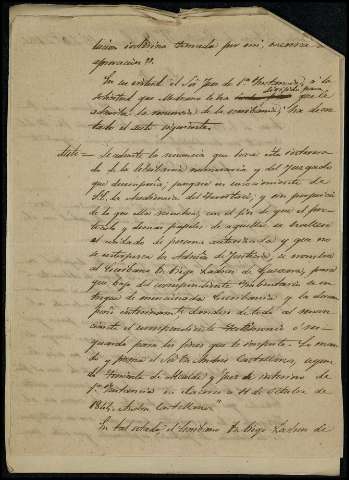 lucion interina tomada por mi, merece su
aprovacion".
En su virtud el Sor Juez de 1ª Instancia, á la
dirigido para
solicitud que Medrano le ha que le
admita la renuncia de la escribania, ha decre-
tado el auto siguiente.
Auto = Se admite la renuncia que hace este interesa-
do de la Escribania numeraria y del Juzgado
que desempeña, póngase en conocimiento de
S.E. la Audiencia del Territorio, y sin perjuicio
de lo que ella resuelva, con el fin de que el pro-
tocolo y demas papeles de aquella se
al cuidado de persona autorizada y que no
se entorpezca la Admon de Justicia, se nombra
al Escribano D. Diego Ladron de Guevara, para
que bajo del correspondiente Inventario se en-
tregue de mencionada Escribania y la desem-
peñe interinamente, dandose de todo al renun-
ciante el correspondiente Testimonio ó res-
guardo para los fines que le importe. Lo man-
dó y firma el Sor Dn Andres Castellanos,
do Teniente de Alcalde y Juez de interino de
1ª Instancia de á 11 de Octubre de
Andres Castellanos"
En tal estado, el Escribano Dn Diego Ladron de